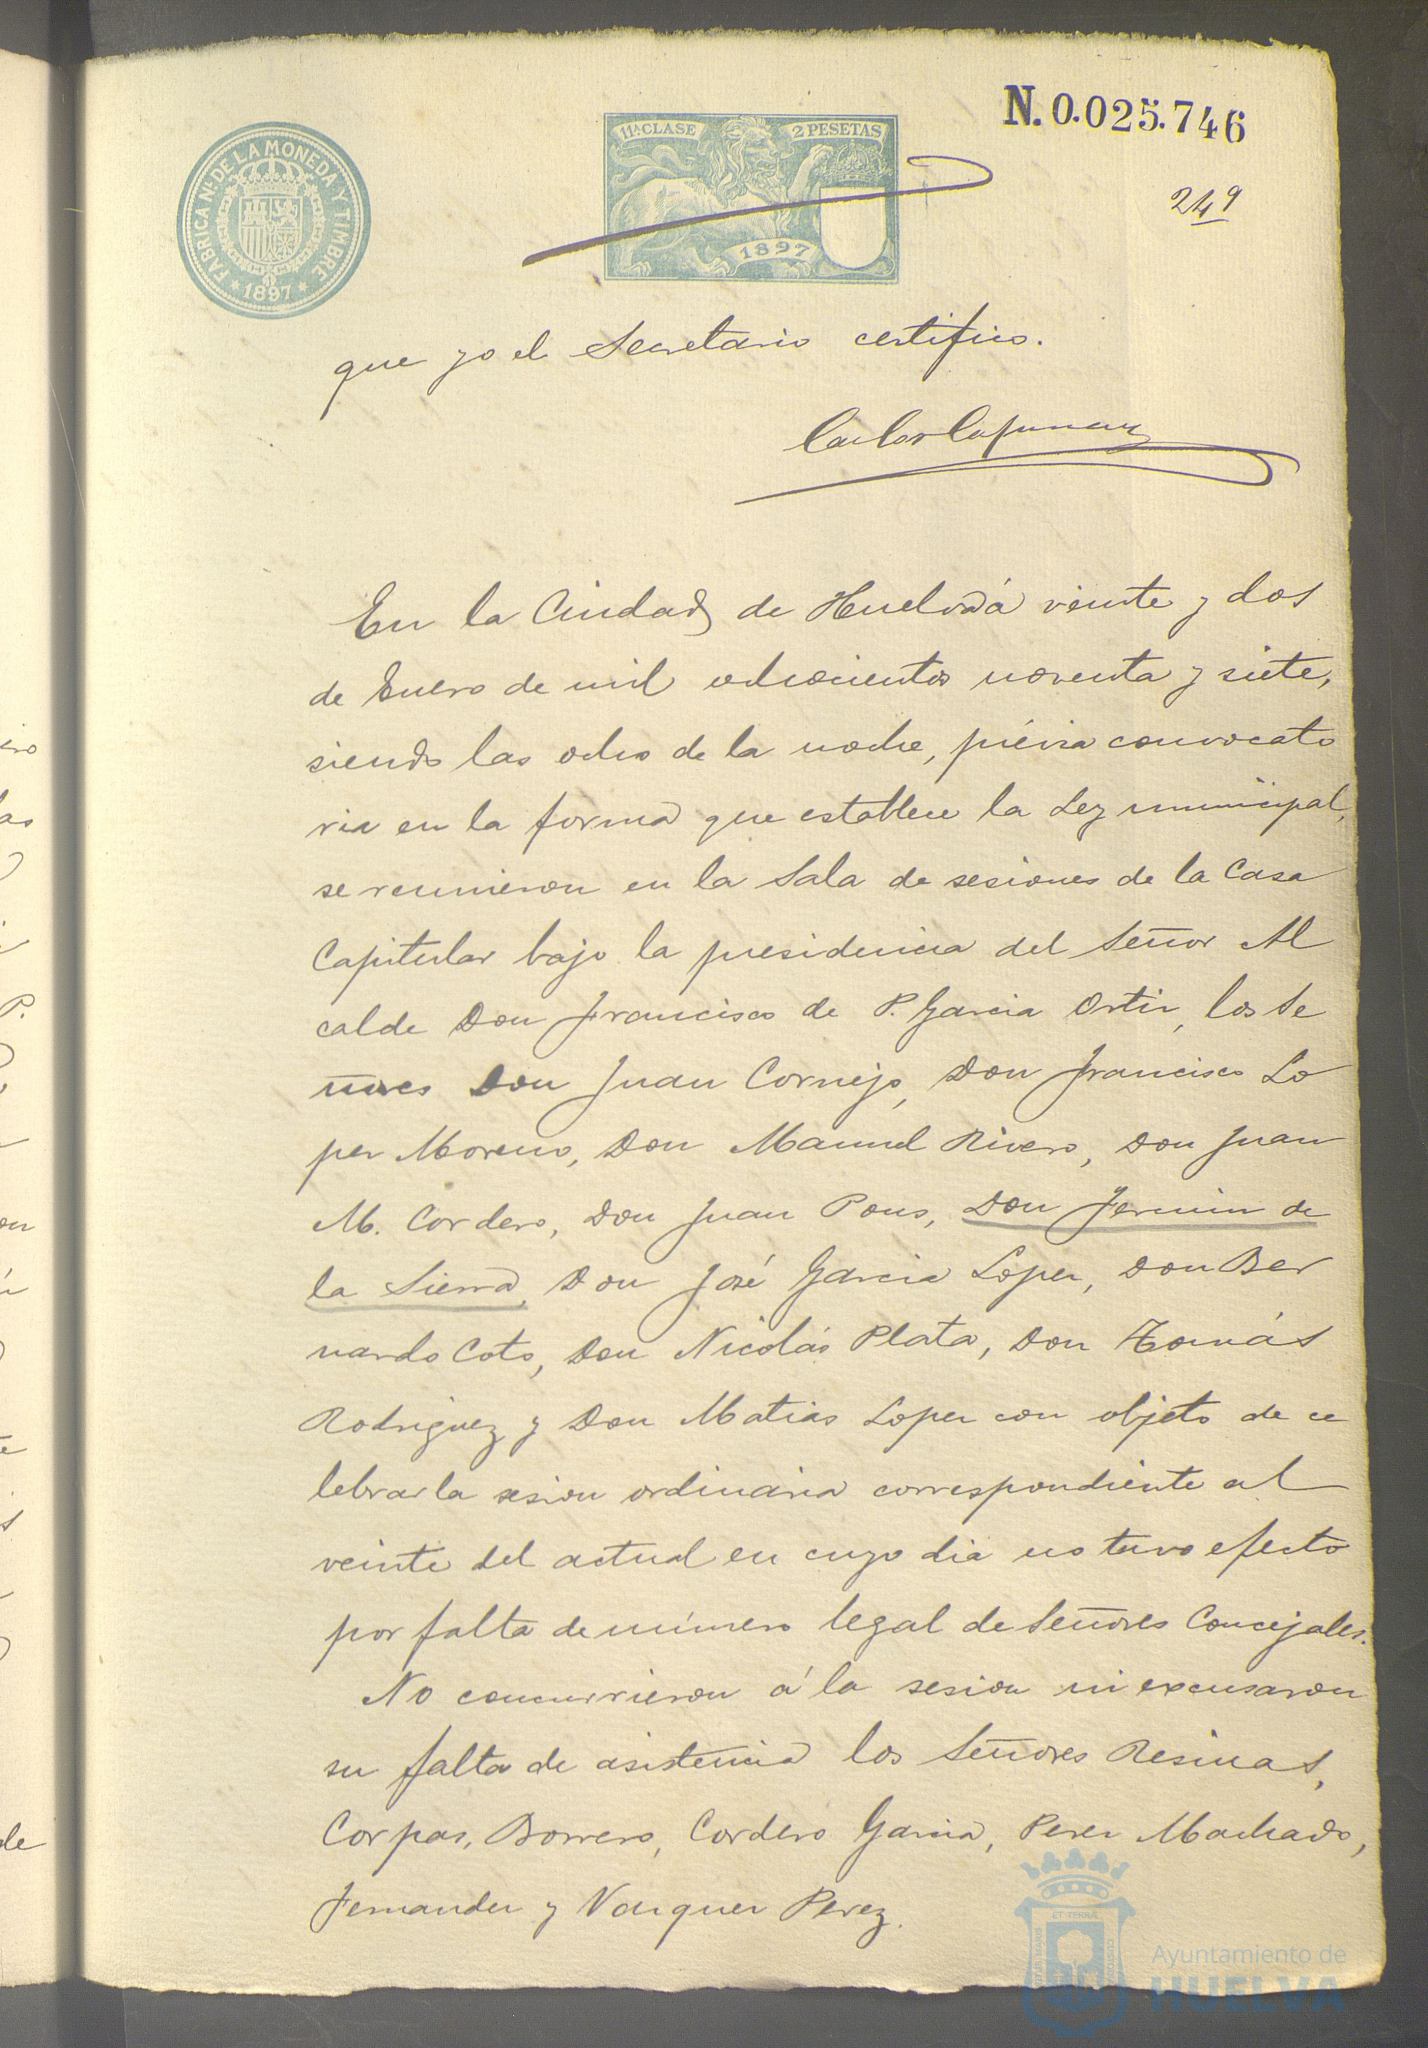 N. 0.025.746
11ª CLASE 2 PESETAS
FABRICA Nal. DE LA MONEDA Y TIMBRE
* 1897 *
1897
249
que yo el Secretario certifico.
En la Ciudad de Huelva á veinte y dos
de Enero de mil ochocientos noventa y siete,
siendo las ocho de la noche, prévia convocato
ria en la forma que establece la Ley municipal,
se reunieron en la Sala de sesiones de la Casa
Capitular bajo la presidencia del Señor Al
calde Don Francisco de P. Garcia Ortiz, los Se
ñores Don Juan Cornejo, Don Francisco Lo
pez Moreno, Don Manuel Rivero, Don Juan
M. Cordero, Don Juan Pons, Don Fermin de
la Sierra, Don José Garcia Lopez, Don Ber
nardo Coto, Don Nicolás Plata, Don Tomás
Rodriguez y Don Matias Lopez con objeto de ce
lebrar la sesion ordinaria correspondiente al
veinte del actual en cuyo dia no tuvo efecto
por falta de número legal de Señores Concejales.
No concurrieron á la sesion ni excusaron
su falta de asistencia los Señores Resinas,
Corpas, Borrero, Cordero Garcia, Perez Machado,
Fernandez y Vazquez Perez.
Ayuntamiento de
HUELVA